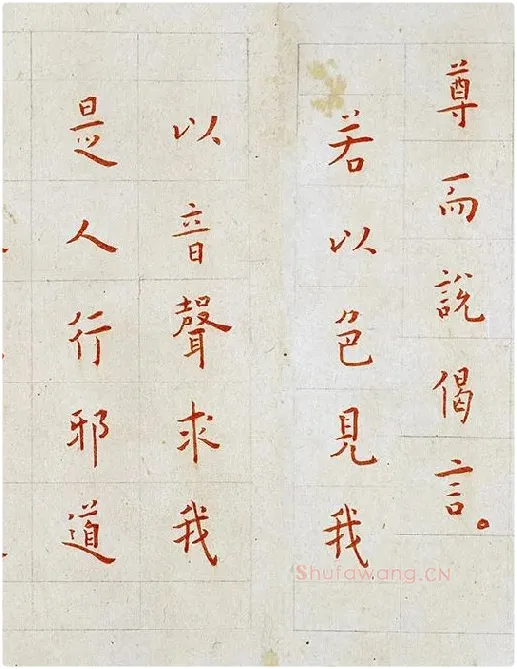 尊而說偈言。
若以色見我
以音聲求我
是人行邪道
Shufawang.CN